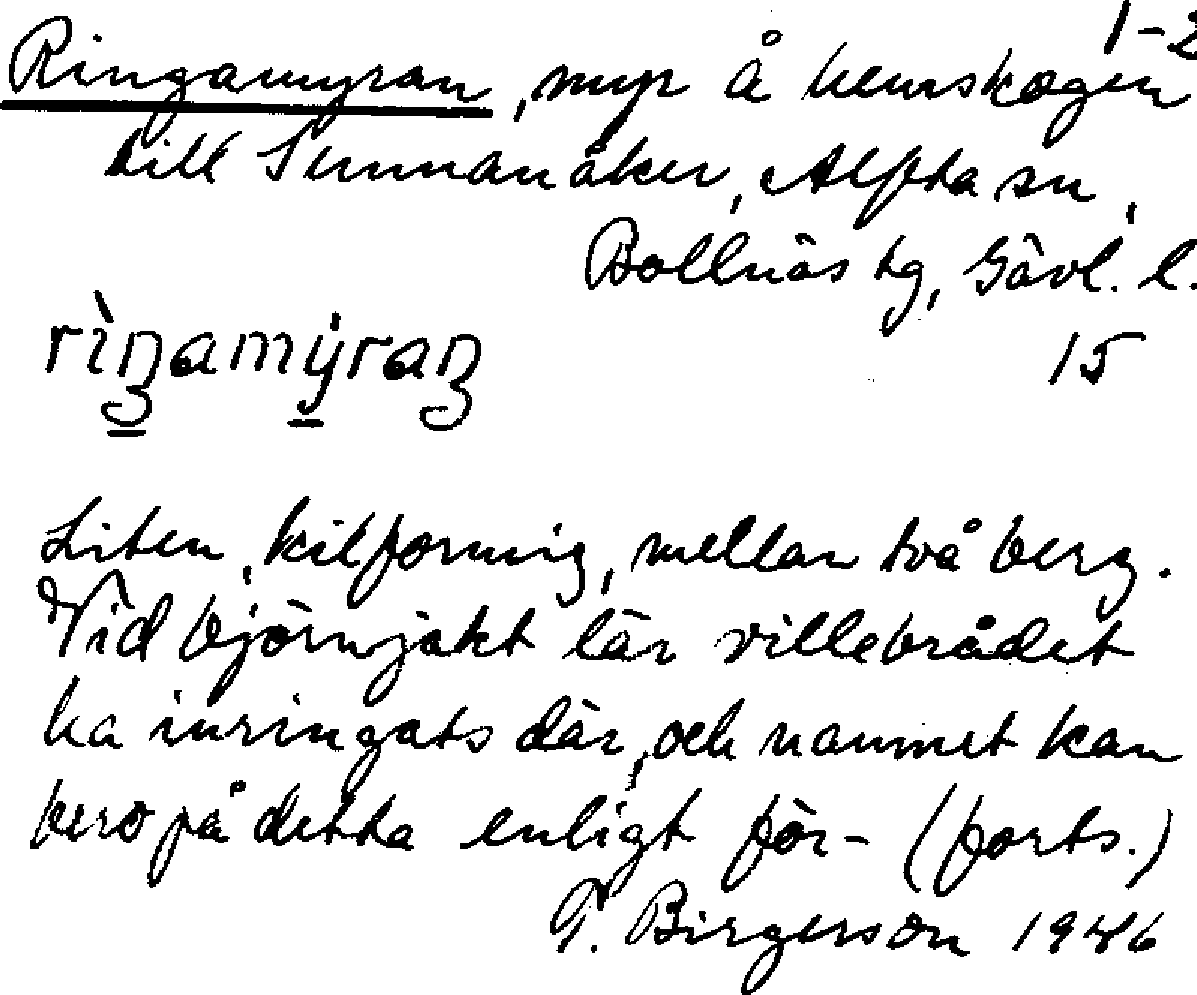 1-2
Ringamyran, myr å hemskogen
till Sunnanåker, Alfta sn,
Bollnäs tg, Gävl. l.
rìŋamýraɳ 15
Liten, kilformig, mellan två berg.
Vid björnjakt lär villebrådet
ha inringats där, och namnet kan
bero på detta enligt för- (forts.)
T. Birgerson 1946